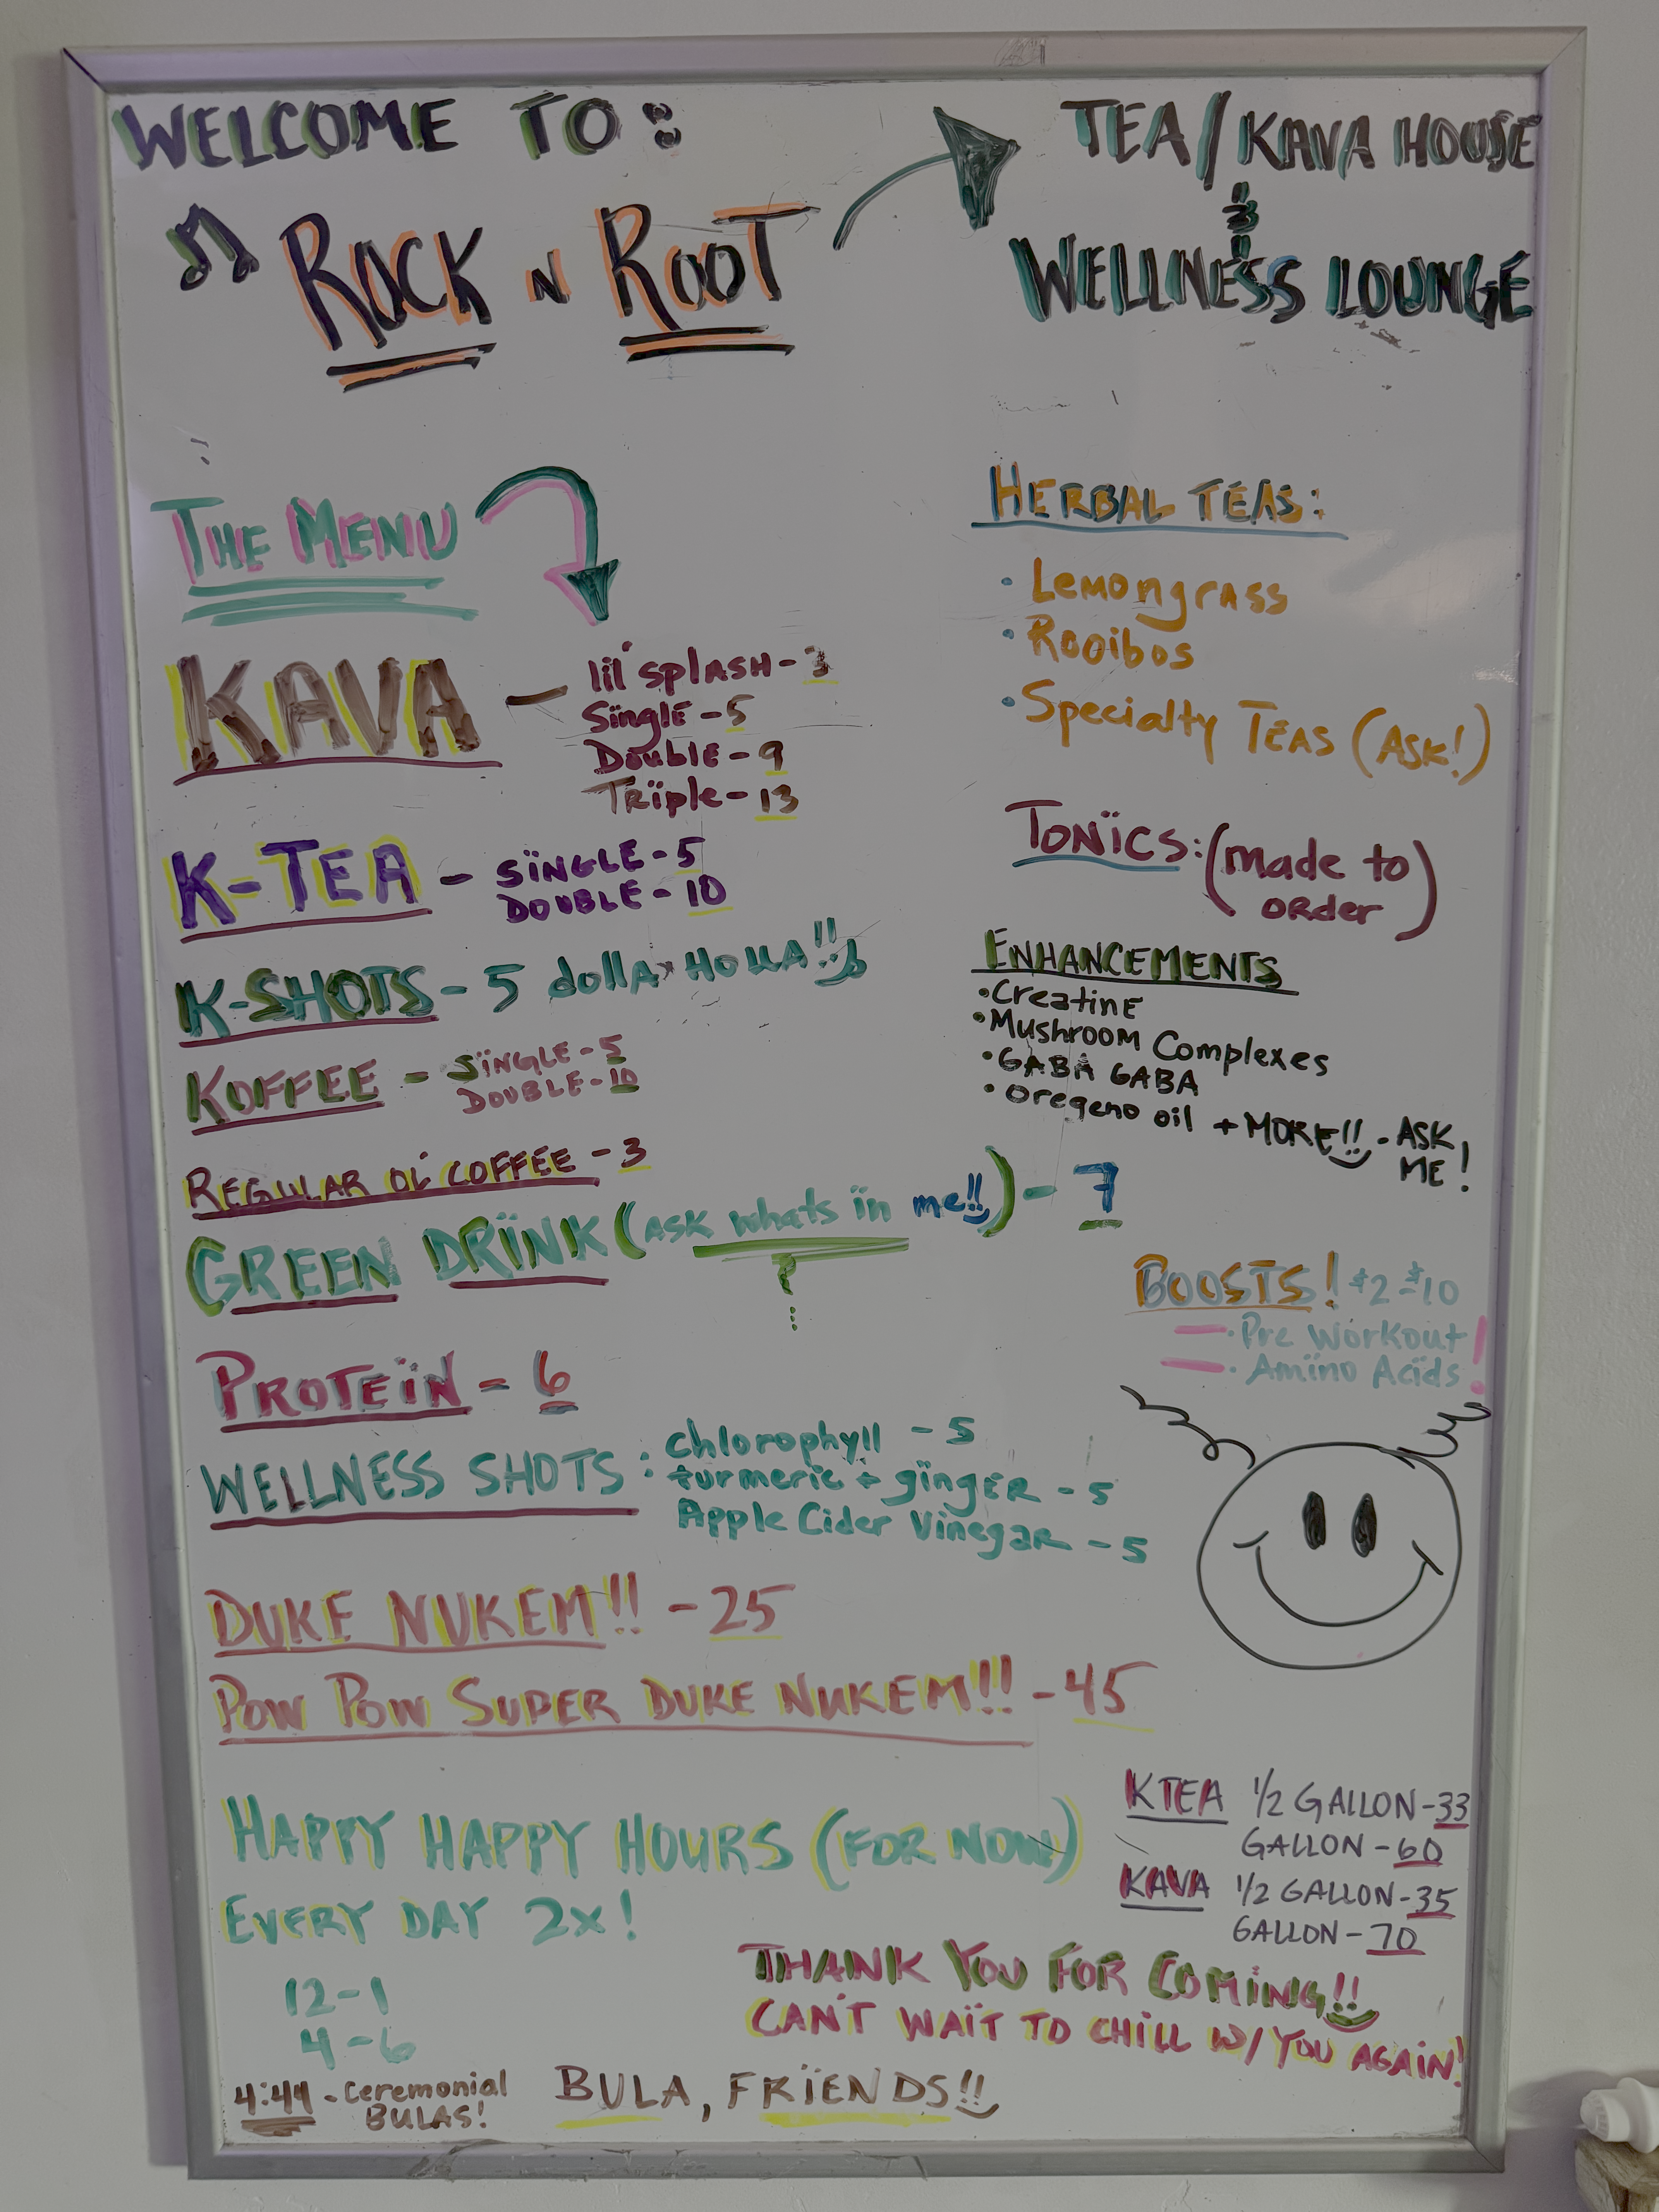 WELCOME TO:
ROCK N ROOT
TEA/KAVA HOUSE
&
WELLNESS LOUNGE
THE MENU
KAVA - lil' splASH - 3
Single - 5
Double - 9
Triple - 13
K-TEA - SINGLE - 5
DOUBLE - 10
K-SHOTS - 5 dollA HOLLA!!
KOFFEE - SINGLE - 5
DOUBLE - 10
REGULAR OL' COFFEE - 3
GREEN DRINK (ASK whats in me!!) - 7
?
PROTEIN - 6
WELLNESS SHOTS: chlorophyll - 5
turmeric + ginger - 5
Apple Cider Vinegar - 5
DUKE NUKEM!! - 25
POW POW SUPER DUKE NUKEM!!! - 45
HAPPY HAPPY HOURS (FOR NOW)
EVERY DAY 2x!
12-1
4-6
4:44 - Ceremonial
BULAS!
HERBAL TEAS:
• Lemongrass
• Rooibos
• Specialty TEAS (ASK!)
TONICS: (made to
order)
ENHANCEMENTS
• Creatine
• Mushroom Complexes
• GABA GABA
• Oregeno oil + MORE!! - ASK
ME!
BOOSTS! $2-$10
- • Pre Workout!
- • Amino Acids!
KTEA 1/2 GALLON - 33
GALLON - 60
KAVA 1/2 GALLON - 35
GALLON - 70
THANK YOU FOR COMING!!
CAN'T WAIT TO CHILL W/ YOU AGAIN!
BULA, FRIENDS!!